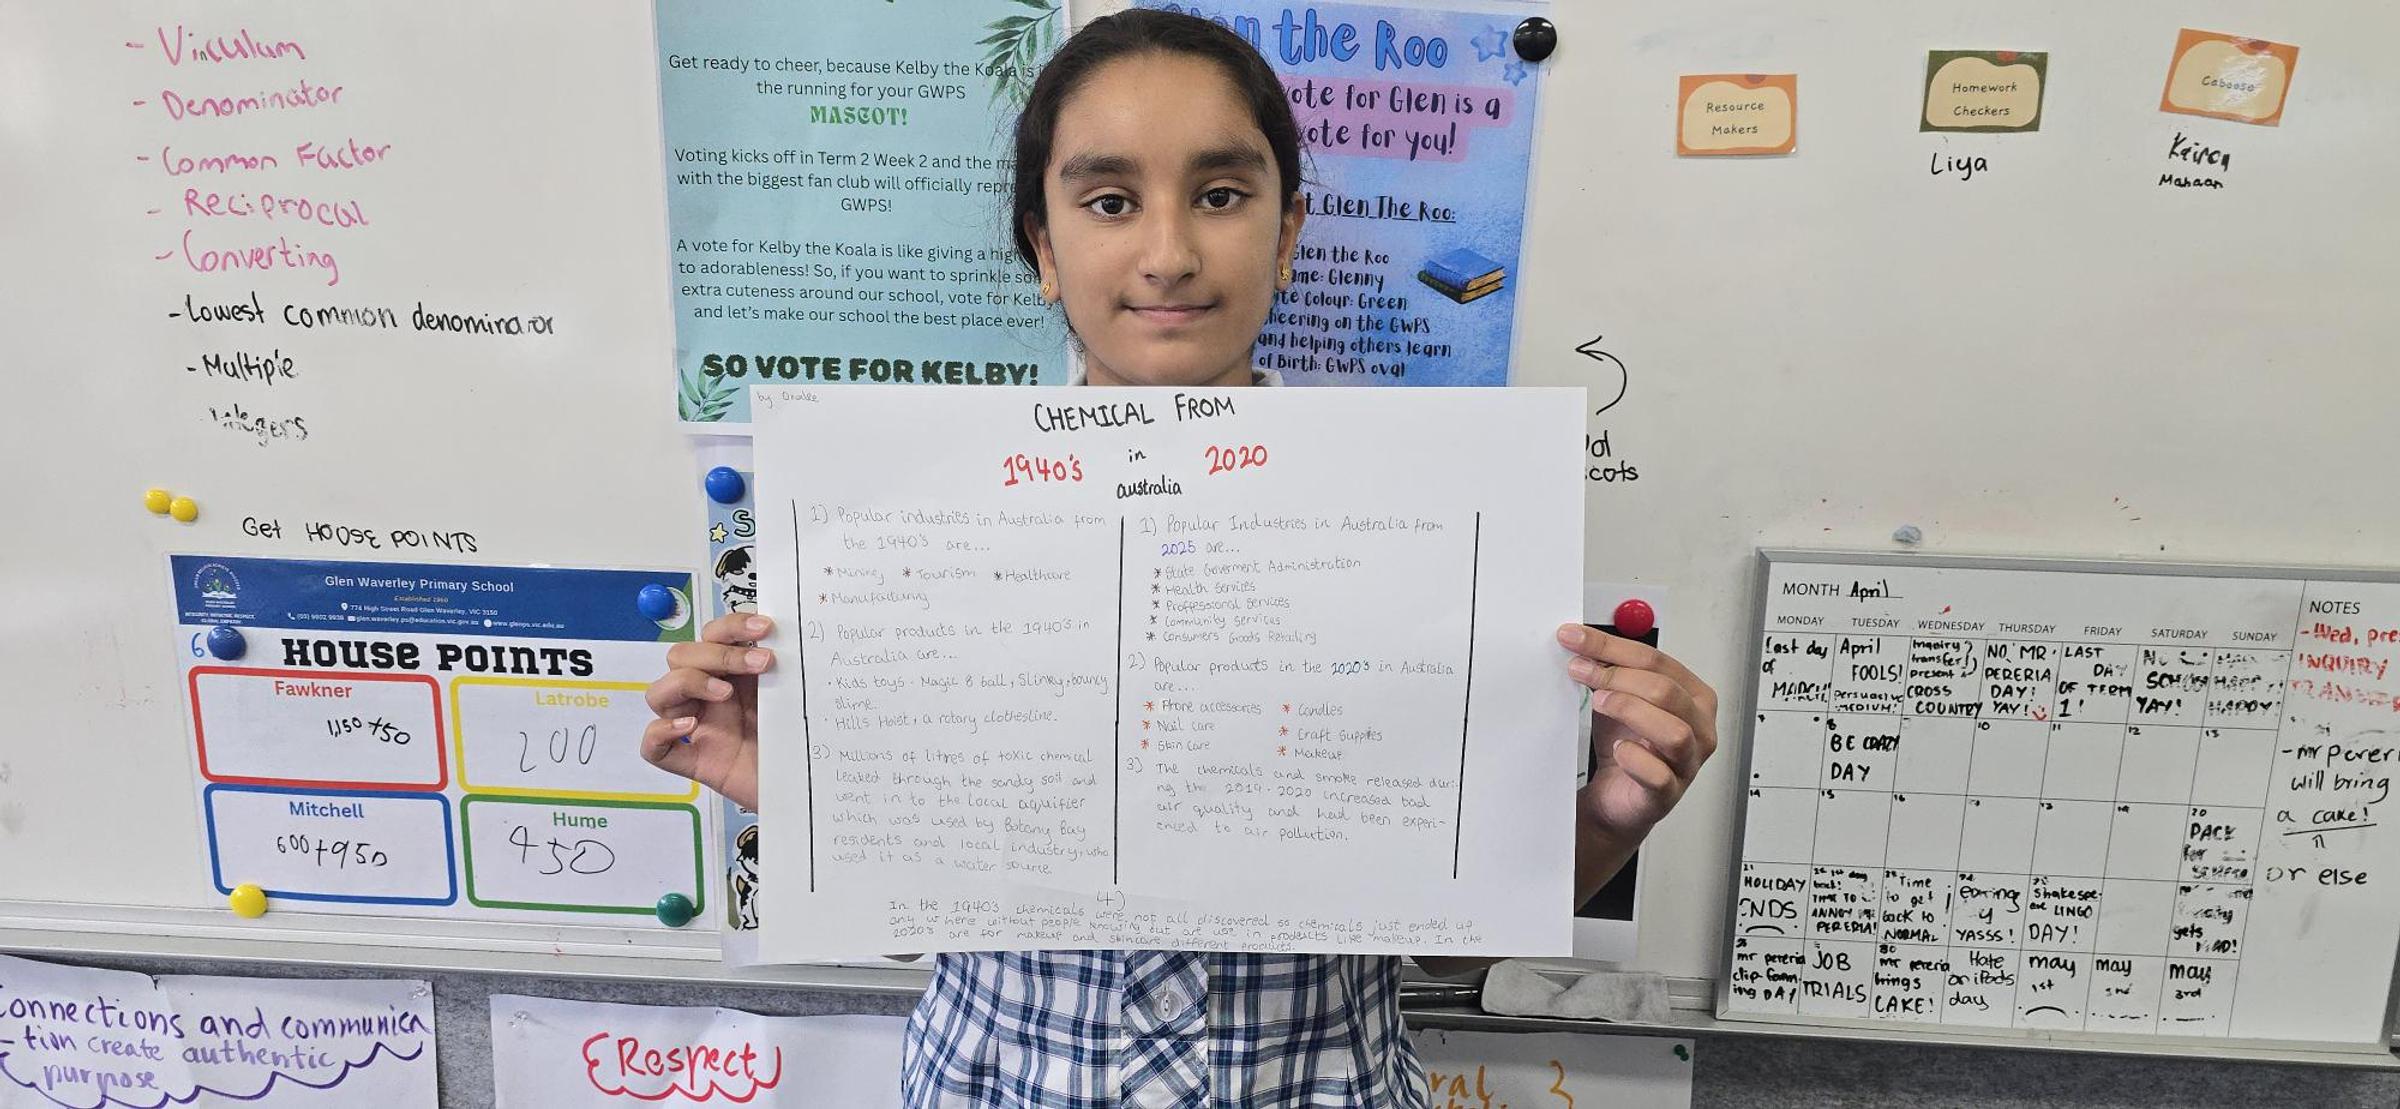 - Vinculum
- Denominator
- Common Factor
- Reciprocal
- Converting
- Lowest common denominator
- Multiple
Get HOUSE POINTS
Glen Waverley Primary School
Established 1960
774 High Street Road Glen Waverley, VIC 3150
6
HOUSE POINTS
Fawkner
1,150 +50
Latrobe
200
Mitchell
600+950
Hume
450
Connections and communica
- tion create authentic
purpose
{Respect}
Get ready to cheer, because Kelby the Koala is
the running for your GWPS
MASCOT!
Voting kicks off in Term 2 Week 2 and the
with the biggest fan club will officially
GWPS!
A vote for Kelby the Koala is like giving a
to adorableness! So, if you want to sprinkle
extra cuteness around our school, vote for
and let's make our school the best place ever!
SO VOTE FOR KELBY!
the Roo
vote for Glen is a
vote for you!
Glen The Roo:
Glen the Roo
Glenny
Colour: Green
cheering on the GWPS
and helping others learn
of Birth: GWPS oval
by
CHEMICAL FROM
1940's in 2020
australia
1) Popular industries in Australia from
the 1940's are...
* Mining * Tourism * Healthcare
* Manufacturing
2) Popular products in the 1940's in
Australia are...
· Kids toys - Magic 8 ball, Slinky, bouncy
slime.
· Hills Hoist, a rotary clothesline.
3) Millions of litres of toxic chemical
leaked through the sandy soil and
went in to the local aquifier
which was used by Botany Bay
residents and local industry, who
used it as a water source.
1) Popular Industries in Australia from
2025 are...
* State Goverment Administration
* Health Services
* Proffessional Services
* Community Services
* Consumers Goods Retailing
2) Popular products in the 2020's in Australia
are...
* Phone accessories * Candles
* Nail care * Craft Supplies
* Skin Care * Makeup
3) The chemicals and smoke released duri-
ng the 2019-2020 increased bad
air quality and had been experi-
enced to air pollution.
4)
In the 1940's chemicals were not all discovered so chemicals just ended up
any where without people knowing but are use in products like makeup. In the
2020's are for makeup and skincare different products.
Resource
Makers
Homework
Checkers
Liya
Caboose
Mahaan
MONTH April
MONDAY TUESDAY WEDNESDAY THURSDAY FRIDAY SATURDAY SUNDAY
Last day
of
April
FOOLS!
CROSS
COUNTRY
NO MR.
PERERIA
DAY!
YAY!
LAST
DAY
OF TERM
1!
YAY!
8
BE CRAZY
DAY
10
11
12
13
14
15
16
20
PACK
for
21
HOLIDAY
ENDS
Time
to get
back to
NORMAL
YASSS!
Shakespe-
are LINGO
DAY!
gets
mr pereria
JOB
TRIALS
30
mr pereria
brings
CAKE!
Hate
on iPads
day
may
1st
may
may
3rd
NOTES
INQUIRY
will bring
a cake!
or else